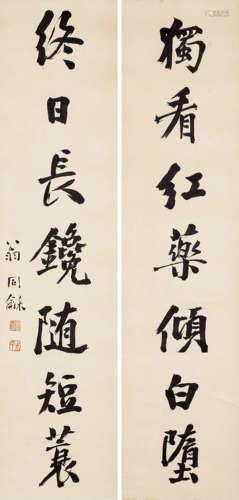 獨看红藥傾白墮
終日長鑱随短蓑
翁同龢